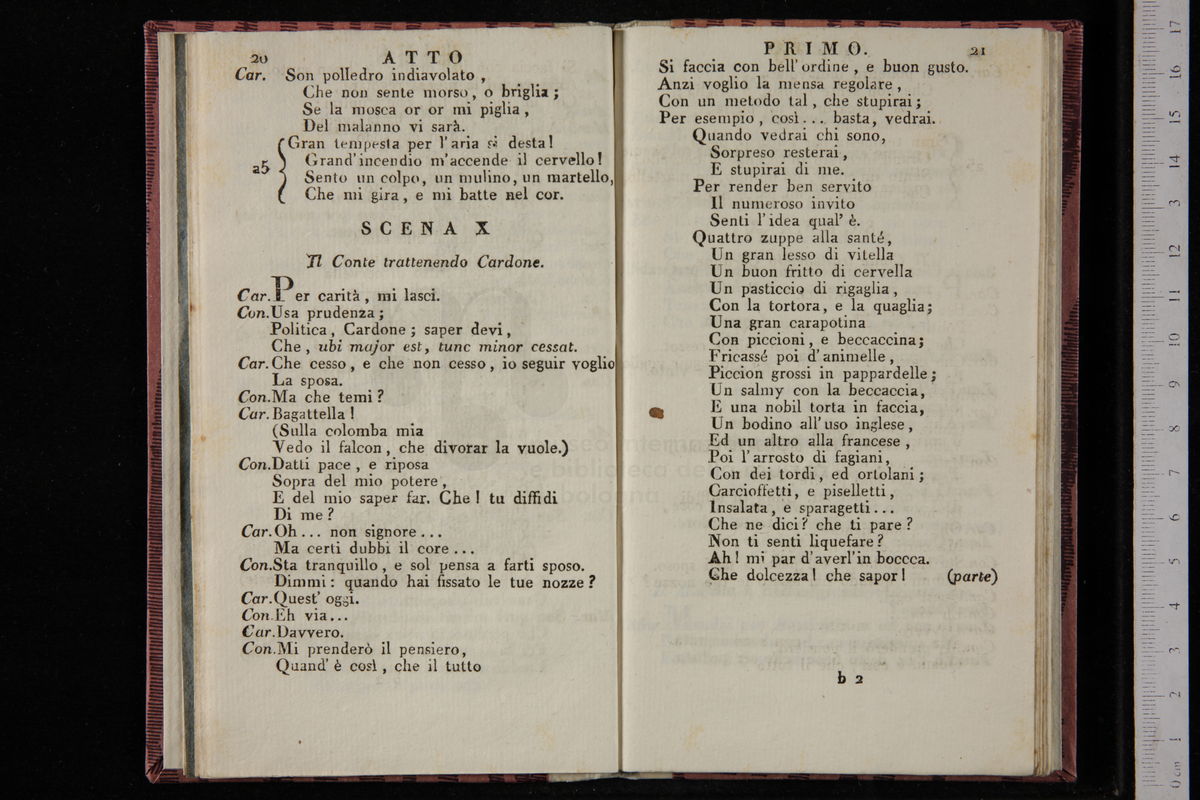 20 ATTO
Car. Son polledro indiavolato ,
Che non sente morso, o briglia ;
Se la mosca or or mi piglia ,
Del malanno vi sarà.
Gran tempesta per l'aria si desta!
a5 Grand'incendio m'accende il cervello!
Sento un colpo, un mulino, un martello,
Che mi gira, e mi batte nel cor.
SCENA X
Il Conte trattenendo Cardone.
Car. Per carità , mi lasci.
Con. Usa prudenza ;
Politica , Cardone ; saper devi ,
Che , ubi major est, tunc minor cessat.
Car. Che cesso , e che non cesso , io seguir voglio
La sposa.
Con. Ma che temi ?
Car. Bagattella !
(Sulla colomba mia
Vedo il falcon , che divorar la vuole.)
Con. Datti pace , e riposa
Sopra del mio potere ,
E del mio saper far. Che ! tu diffidi
Di me ?
Car. Oh ... non signore ...
Ma certi dubbi il core ...
Con. Sta tranquillo , e sol pensa a farti sposo.
Dimmi : quando hai fissato le tue nozze ?
Car. Quest' oggi.
Con. Eh via...
Car. Davvero.
Con. Mi prenderò il pensiero,
Quand' è così , che il tutto
PRIMO. 21
Si faccia con bell'ordine , e buon gusto.
Anzi voglio la mensa regolare ,
Con un metodo tal , che stupirai ;
Per esempio , così... basta, vedrai.
Quando vedrai chi sono,
Sorpreso resterai ,
E stupirai di me.
Per render ben servito
Il numeroso invito
Senti l'idea qual' è.
Quattro zuppe alla santé,
Un gran lesso di vitella
Un buon fritto di cervella
Un pasticcio di rigaglia ,
Con la tortora, e la quaglia;
Una gran carapotina
Con piccioni , e beccaccina;
Fricassé poi d'animelle ,
Piccion grossi in pappardelle ;
Un salmy con la beccaccia,
E una nobil torta in faccia,
Un bodino all'uso inglese ,
Ed un altro alla francese ,
Poi l'arrosto di fagiani,
Con dei tordi , ed ortolani ;
Carcioffetti, e piselletti ,
Insalata , e sparagetti...
Che ne dici ? che ti pare ?
Non ti senti liquefare ?
Ah! mi par d'averl'in boccca.
Che dolcezza ! che sapor ! (parte)
b 2